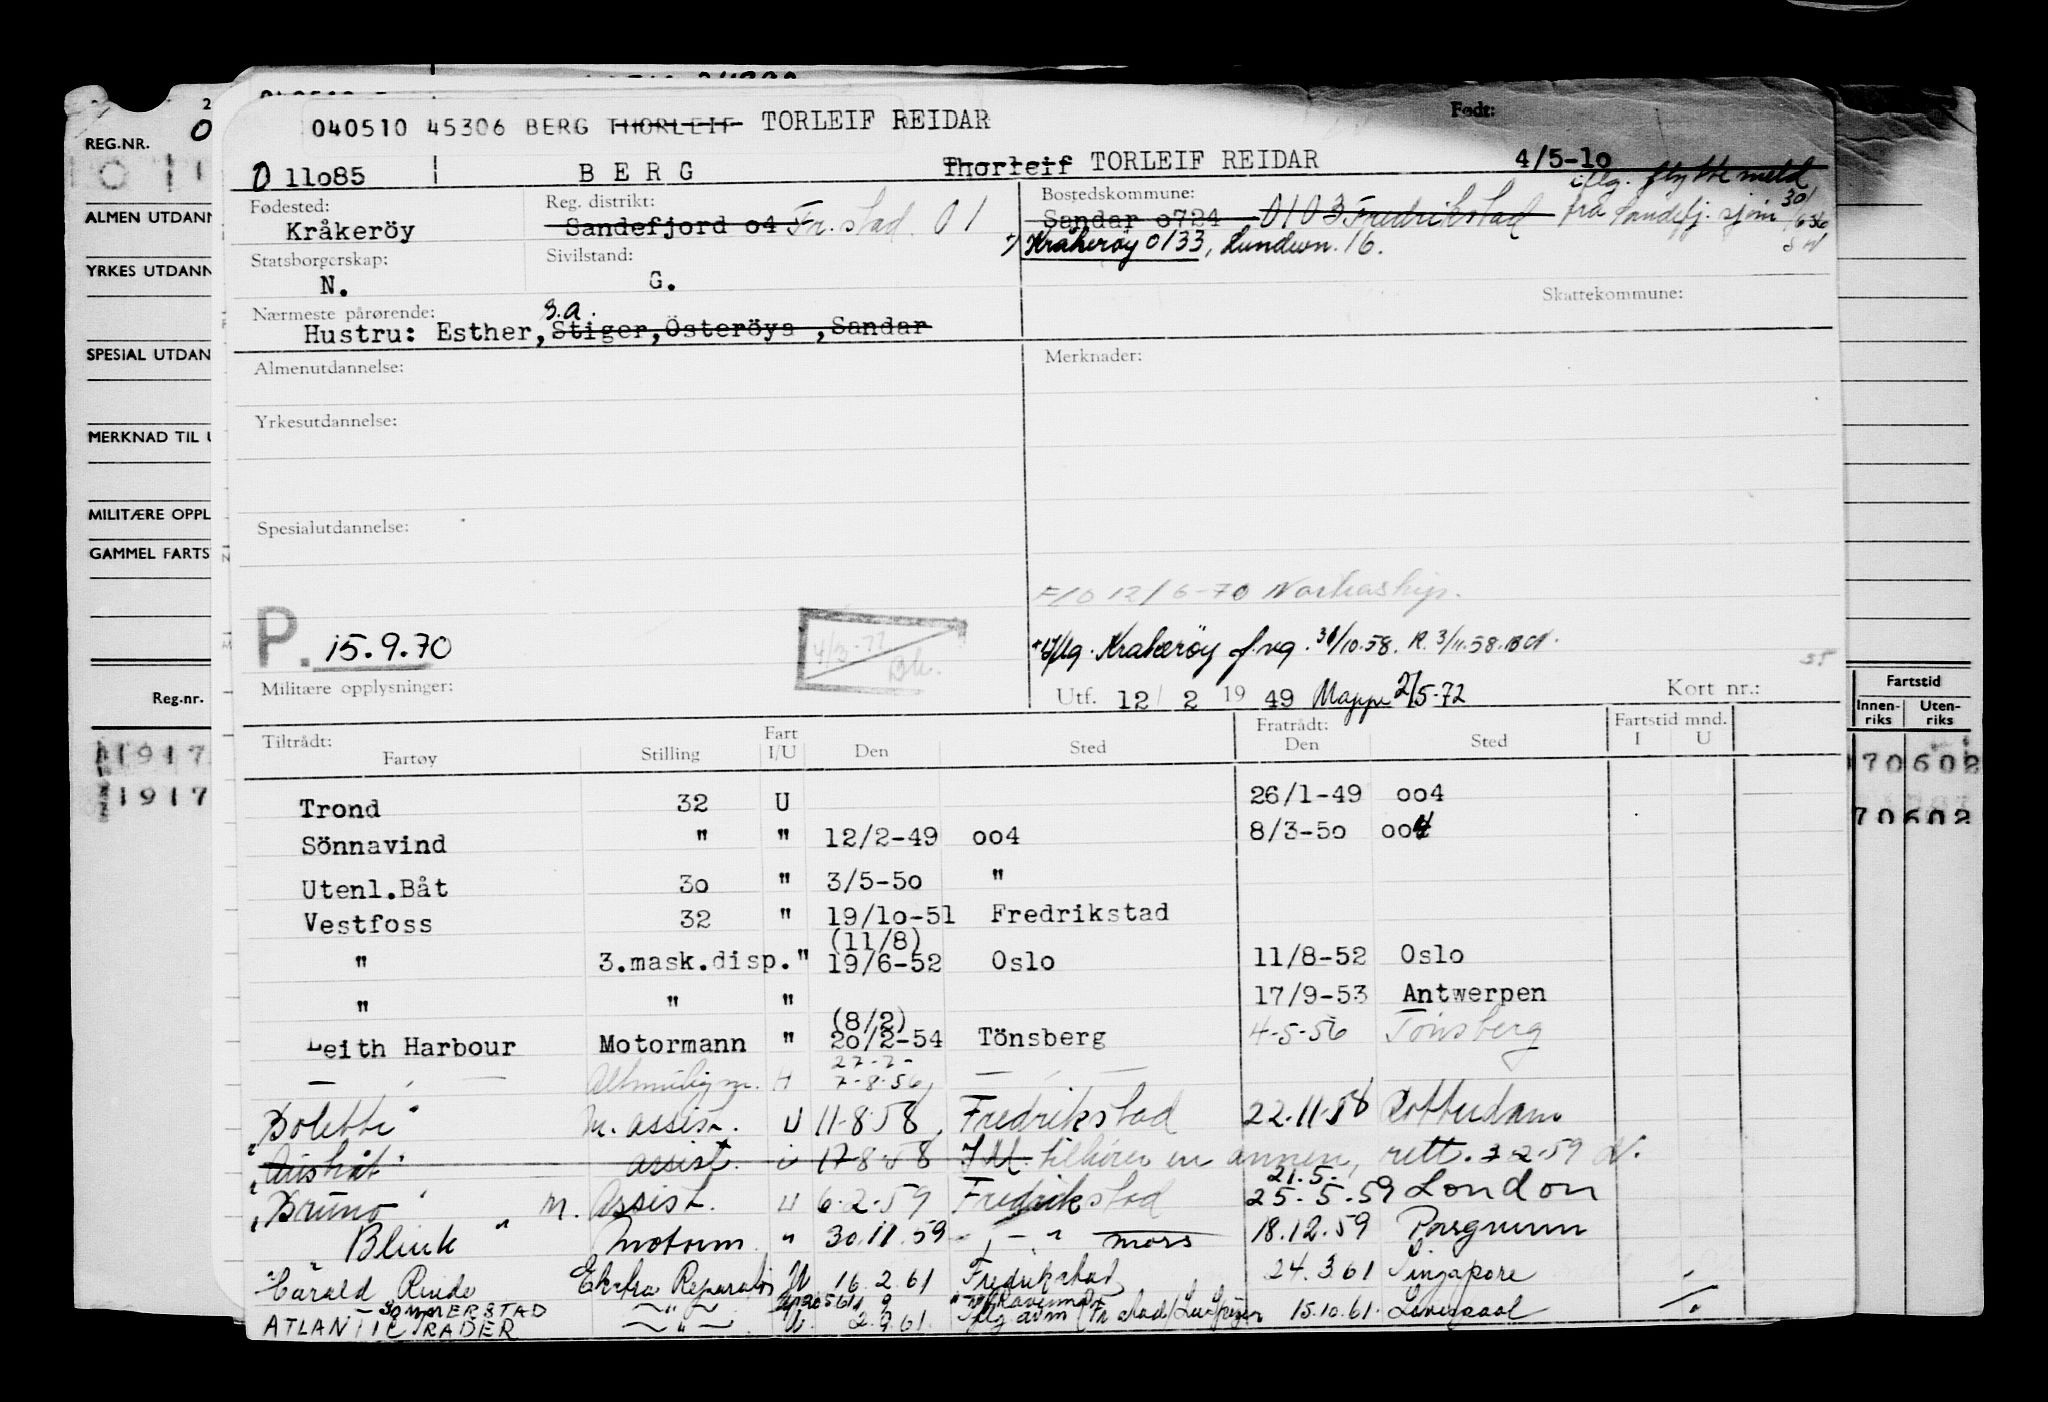 040510 45306 BERG THORLEIF TORLEIF REIDAR
Født:
REG.NR.
0 11o85 B E R G Thorleif TORLEIF REIDAR 4/5-1o
iflg. flyttemeld
Fødested: Reg. distrikt: Bostedskommune:
Kråkeröy Sandefjord o4 Fr.stad. 01 Sandar o724 0103 Fredrikstad fra Sandefj. sjøm 30/
Kråkerøy 0133, Lundeveien. 16.
Statsborgerskap: Sivilstand:
N. G.
Skattekommune:
Nærmeste pårørende: s.a.
Hustru: Esther, Stiger, Österöys , Sandar
ALMEN UTDANN
YRKES UTDANN
SPESIAL UTDAN
MERKNAD TIL U
MILITÆRE OPPL
GAMMEL FARTS
Almenutdannelse: Merknader:
Yrkesutdannelse:
Spesialutdannelse:
F/O 12/6-70 Norhaship.
P. 15.9.70
4/3-77
iflg. Kråkerøy f.vg. 31/10.58. R. 3/11.58.
Militære opplysninger: Utf. 12/ 2 19 49 Mappe 2/5-72 Kort nr.:
Reg.nr. Fartstid
Innen-riks Uten-riks
Tiltrådt: Fratrådt: Fartstid mnd.
Fartøy Stilling Fart I/U Den Sted Den Sted I U
11917 70602
11917 70602
Trond 32 U 26/1-49 oo4
Sönnavind " " 12/2-49 oo4 8/3-5o oo4
Utenl.Båt 3o " 3/5-5o "
Vestfoss 32 " 19/1o-51 Fredrikstad
(11/8)
" 3.mask.disp. " 19/6-52 Oslo 11/8-52 Oslo
" " " 17/9-53 Antwerpen
(8/2)
Leith Harbour Motormann " 2o/2-54 Tönsberg 4-5-56 Tønsberg
— , — Altmuligm. 7-8-56 — , —
"Bolette" M. assist. U 11-8-58, Fredrikstad 22.11.58 Rotterdam
assist. 17-8-58 tilhører en annen, rett. 3-2-59
21.5.
"Bruno" M. Assist. U 6-2-59 Fredrikstad 25.5.59 London
"Blink" Motorm. " 30.11.59 - " - mors 18.12.59 Porsgrunn
"Harald Rinde Ekstra Reparatør U 16.2.61 Fredrikstad 24.3.61 Singapore
SOMMERSTAD — " —
ATLANTIC TRADER — " — 2.9.61. 15.10.61. Liverpool